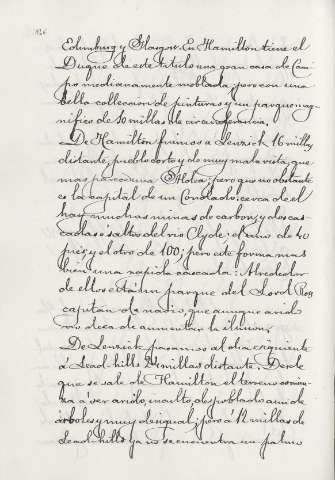 126
Edimburg y Glasgow. En Hamilton tiene el
Duque de este titulo una gran casa de Cam
po medianamente moblada, pero con una
bella colleccion de pinturas y un parque mag
nifico de 10 millas de circunferencia.
De Hamilton fuimos a Lenrick 16 millas
distante, pueblo corto y de muy mala vista, que
mas parece una Aldea; pero que no obstante
es la capital de un Condado; cerca de el
hay muchas minas de carbon, y dos cas
cadas ó saltos del rio Clyde: el uno de 40
pies, y el otro de 100; pero este forma mas
bien una rapida cascata: Alrededor
de ellos está un parque del Lord Ros
capitan de navio, que aunque arido
no deca de aumentar la
De Lenrick pasamos al dia siguiente
á Lead-hills millas distante; Desde
que se sale de Hamilton el terreno comien
za á ser arido, inculto, despoblado aun de
árboles y muy desigual; pero á 12 millas de
Lead-hills ya no se encuentra un palmo